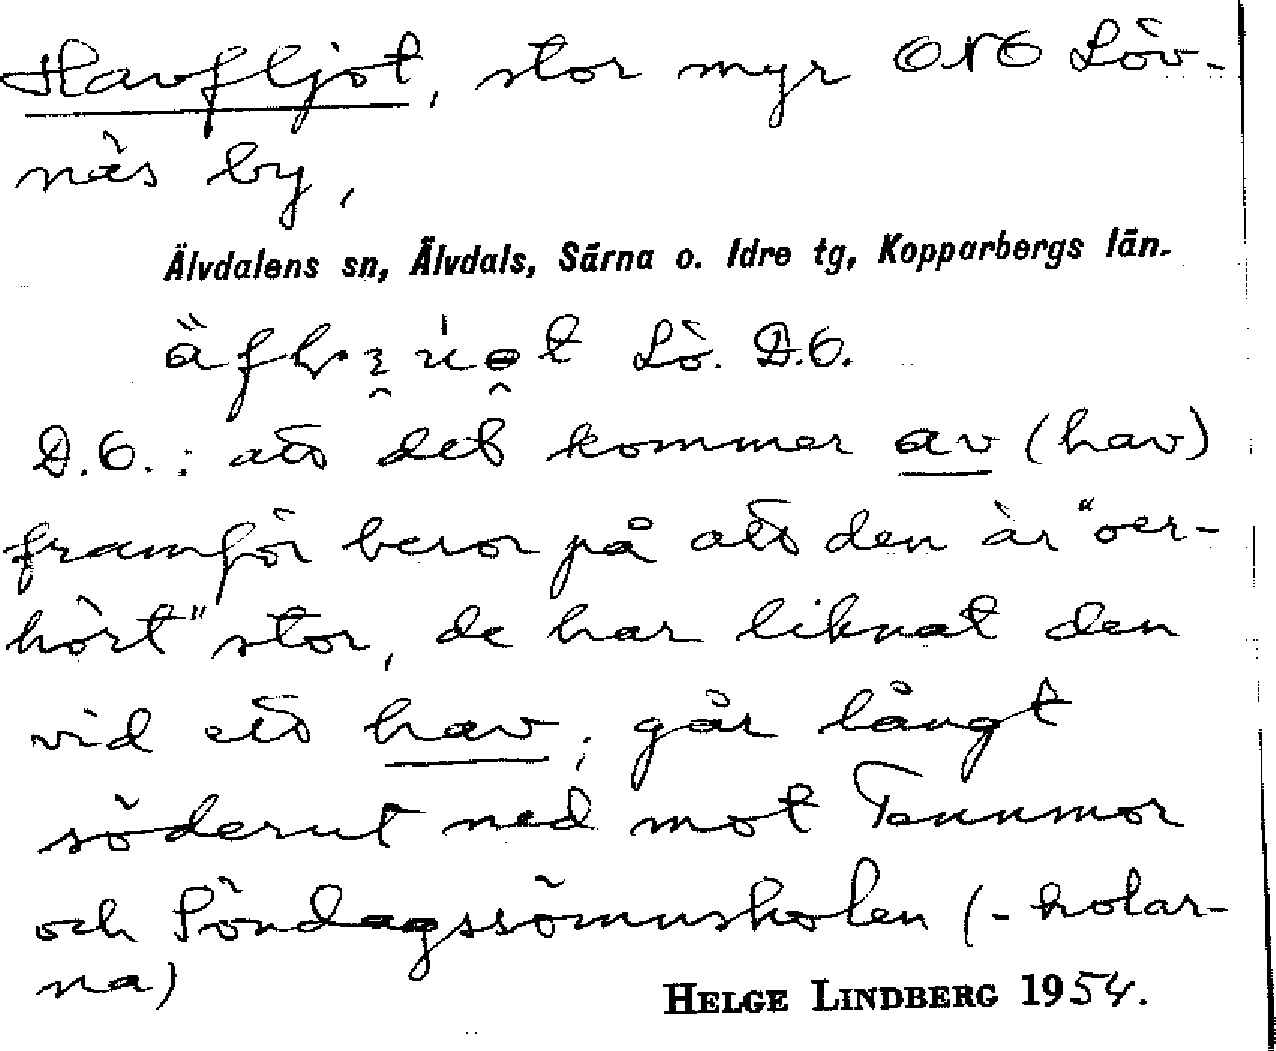 Havfljot, stor myr ONO Löv-
näs by,
Älvdalens sn, Älvdals, Särna o. Idre tg, Kopparbergs län.
Lö. D.O.
D.O.: att det kommer av (hav)
framför beror på att den är "oer-
hört" stor, de har liknat den
vid ett hav; går långt
söderut ned mot Tennmor
och Söndagssömnskolen (-kolar-
na)
HELGE LINDBERG 1954.